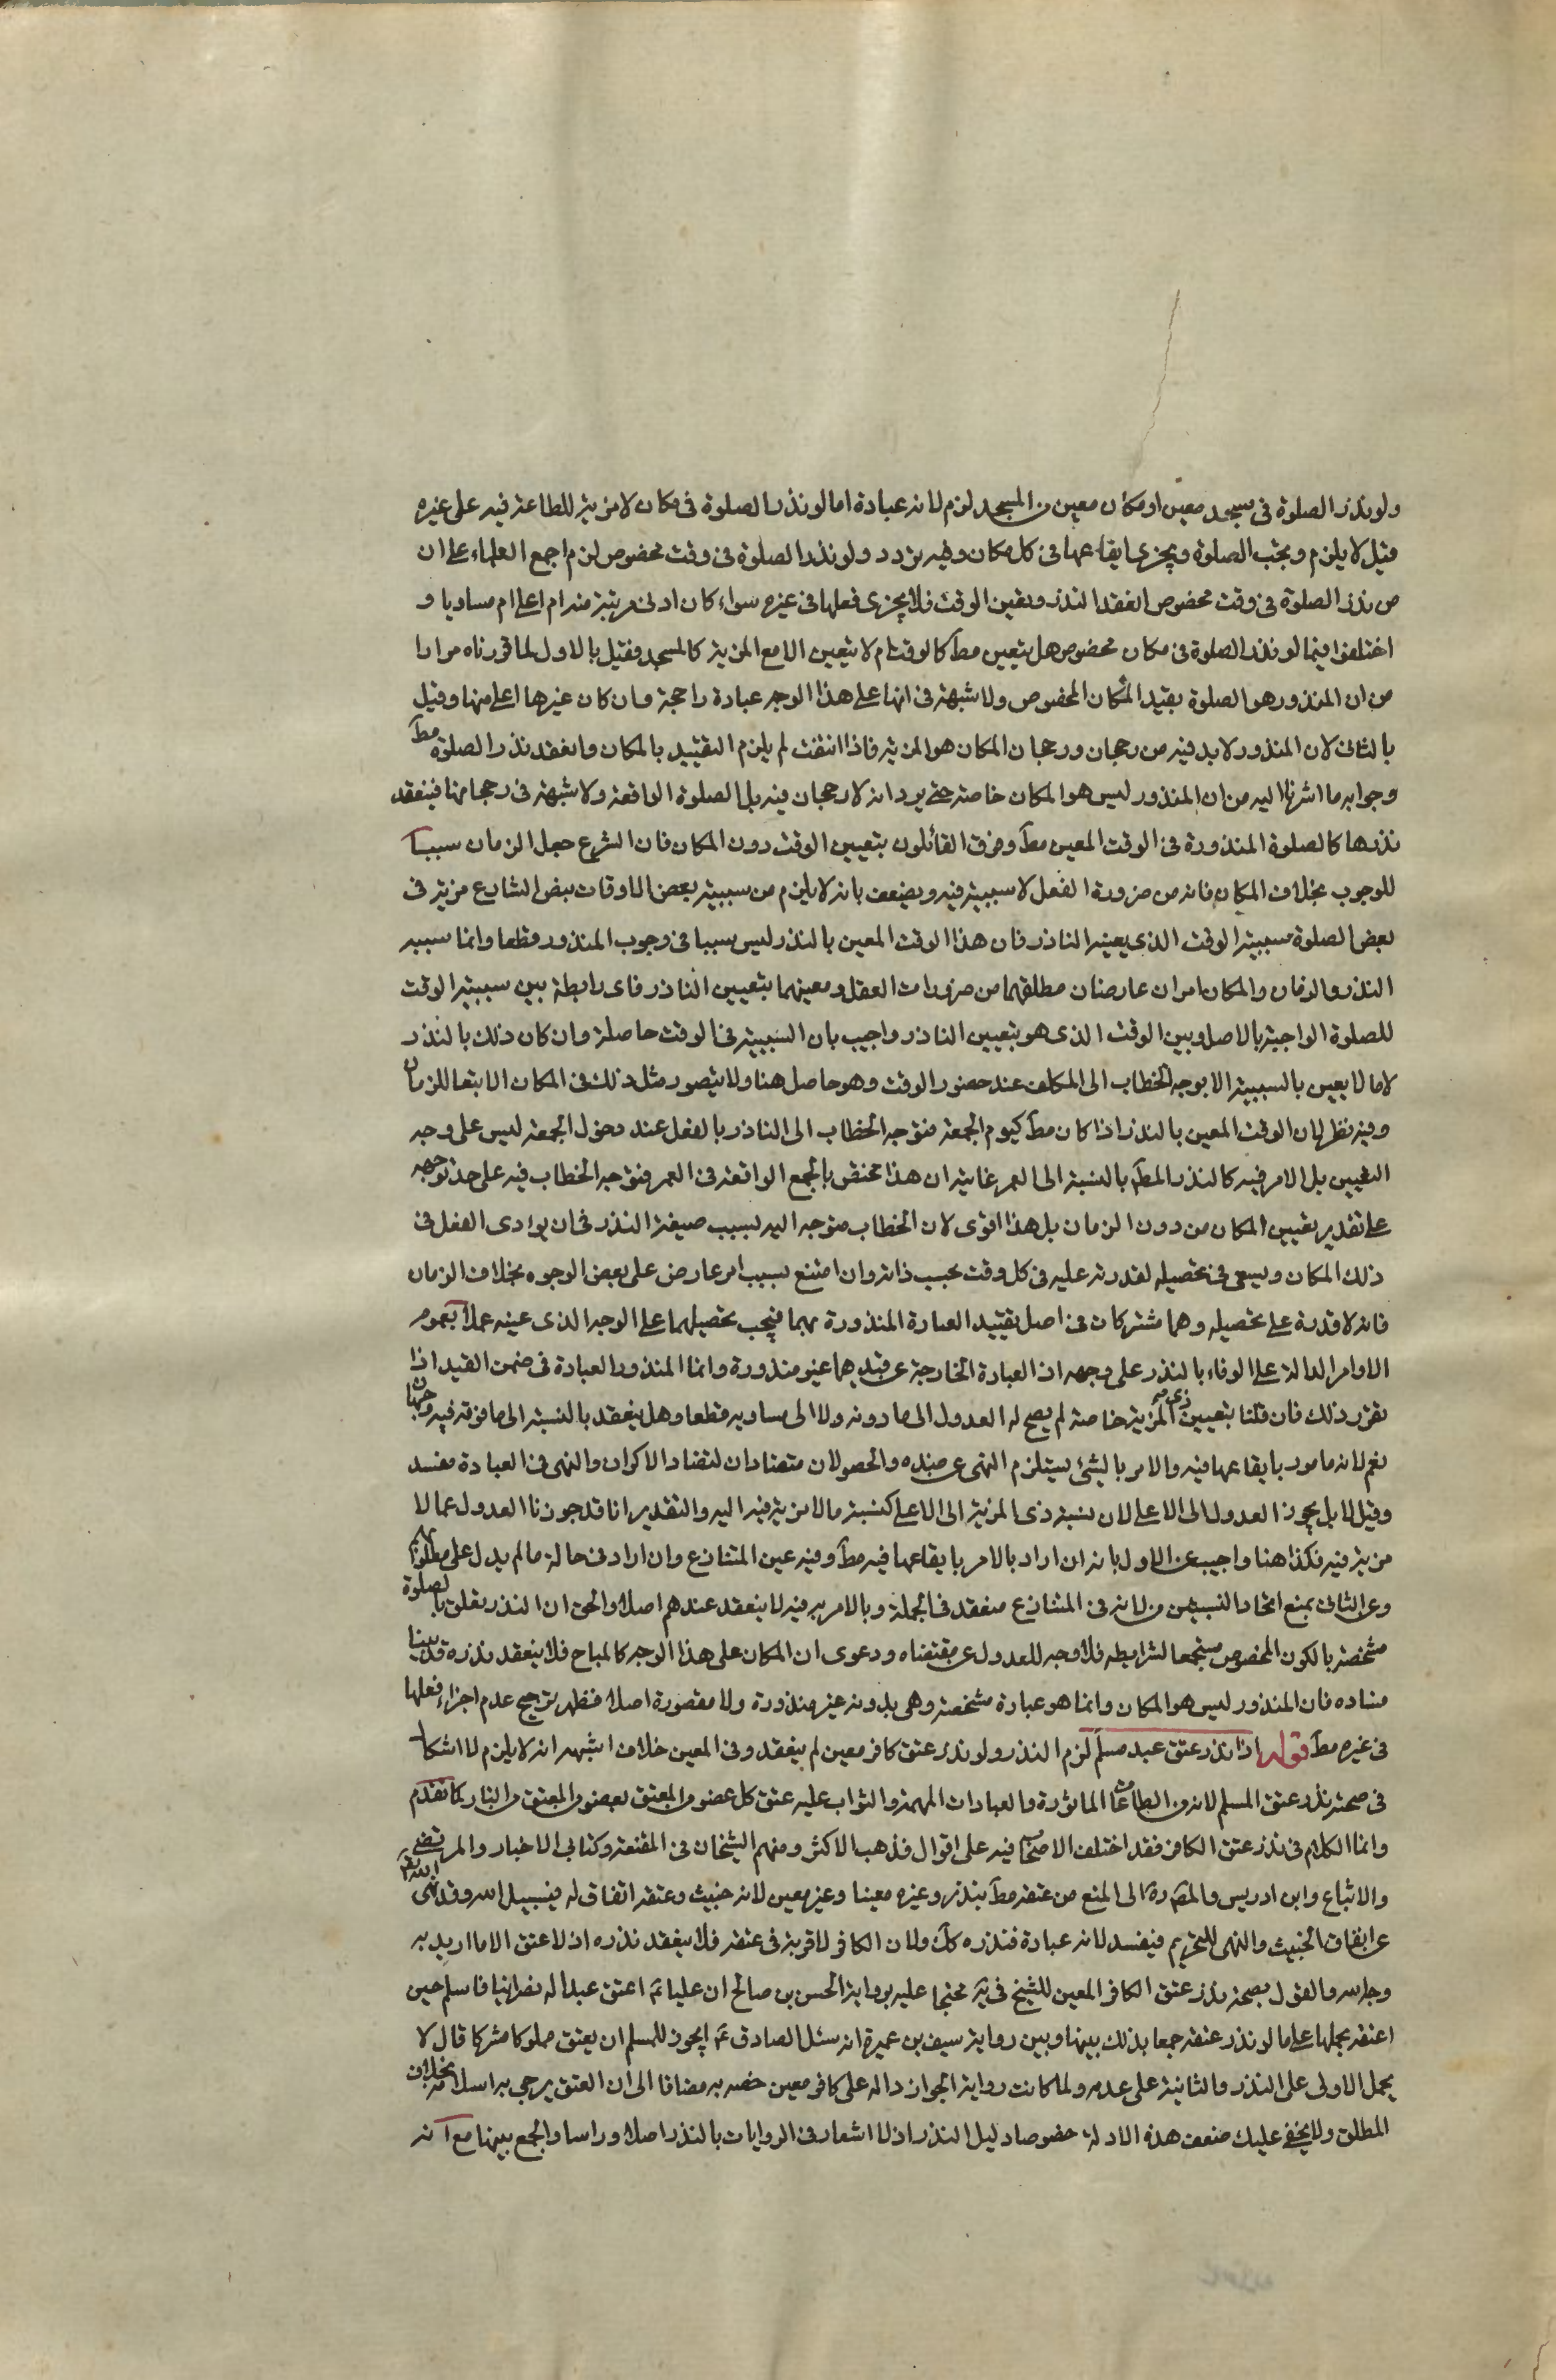 ولو نذر الصلوة فى مسجد معين او مكان معين من المسجد لزم لانه عبادة اما لو نذر الصلوة فى مكان لا مزية للطاعة فيه على غيره
قيل لا يلزم ويجب الصلوة ويجزى ايقاعها فى كل مكان وفيه تردد ولو نذر الصلوة فى وقت مخصوص لزم اجمع العلماء على ان
من نذر الصلوة فى وقت مخصوص انعقد النذر وتعين الوقت فلا يجزى فعلها فى غيره سواء كان ادنى مرتبة منه ام اعلى ام مساويا و
اختلفوا فيما لو نذر الصلوة فى مكان مخصوص هل يتعين مطلقا كالوقت ام لا يتعين الا مع المزية كالمسجد فقيل بالاول لما قررناه مرارا
من ان المنذور هو الصلوة بقيد المكان المخصوص ولا شبهة فى انها على هذا الوجه عبادة راجحة وان كان غيرها اعلى منها وقيل
بالثانى لان المنذور لا بد فيه من رجحان ورجحان المكان هو المزية فاذا انتفت لم يلزم التقييد بالمكان وانعقد نذر الصلوة مط
وجوابه ما اشرنا اليه من ان المنذور ليس هو المكان خاصة حتى يرد انه لا رجحان فيه بل الصلوة الواقعة ولا شبهة فى رجحانها فينعقد
نذرها كالصلوة المنذورة فى الوقت المعين مط وفرق القائلون بتعيين الوقت دون المكان فان الشرع جعل الزمان سببا
للوجوب بخلاف المكان فانه من ضرورة الفعل لا سببية فيه ويضعف بانه لا يلزم من سببية بعض الاوقات بنص الشارع مزية فى
بعض الصلوة سببية الوقت الذى يعينه الناذر فان هذا الوقت المعين بالنذر ليس سببا فى وجوب المنذور قطعا وانما سببه
النذر والزمان والمكان امران عارضان مطلقهما من ضرورات العقل ومعينهما بتعيين الناذر فاى رابطة بين سببية الوقت
للصلوة الواجبة بالاصل وبين الوقت الذى هو بتعيين الناذر واجيب بان السببية فى الوقت حاصلة وان كان ذلك بالنذر
لانا لا نعنى بالسببية الا توجه الخطاب الى المكلف عند حضور الوقت وهو حاصل هنا ولا يتصور مثل ذلك فى المكان الا تبعا للزمان
وفيه نظر لان الوقت المعين بالنذر اذا كان مط كيوم الجمعة فتوجه الخطاب الى الناذر بالفعل عند دخول الجمعة ليس على وجه
التعيين بل الامر فيه كالنذر المط بالنسبة الى العمر غايته ان هذا مختص بالجمع الواقعة فى العمر فتوجه الخطاب فيه على حد توجهه
على تقدير تعيين المكان من دون الزمان بل هذا اقوى لان الخطاب متوجه اليه بسبب صيغة النذر فى ان يؤدى الفعل فى
ذلك المكان ويسعى فى تحصيله لقدرته عليه فى كل وقت بحسب ذاته وان امتنع بسبب امر عارض على بعض الوجوه بخلاف الزمان
فانه لا قدرة على تحصيله وهما مشتركان فى اصل تقييد العبادة المنذورة بهما فيجب تحصيلهما على الوجه الذى عينه عملا بعموم
الاوامر الدالة على الوفاء بالنذر على وجهه اذ العبادة الخارجة عن قيديهما غير منذورة وانما المنذور العبادة فى ضمن القيد اذا
تقرر ذلك فان قلنا بتعيين ذى المزية خاصة لم يصح له العدول الى ما دونه ولا الى مساويه قطعا وهل ينعقد بالنسبة الى ما فوقه فيه وجهان
نعم لانه مامور بايقاعها فيه والامر بالشئ يستلزم النهى عن ضده والحصولان متضادان لتضاد الاكوان والنهى فى العبادة مفسد
وقيل لا بل يجوز العدول الى الاعلى لان نسبة ذى المزية الى الاعلى كنسبة ما لا مزية فيه اليه والتقدير انا قد جوزنا العدول عما لا
مزية فيه فكذا هنا واجيب عن الاول بانه ان اراد بالامر بايقاعها فيه مط وفيه عين المتنازع وان اراد فى حالة ما لم يدل على مطلوبه
وعن الثانى بمنع اتحاد النسبتين فى لانه فى المتنازع منعقد فى الجملة وبالامر به فيه لا ينعقد عندهم اصلا والحق ان النذر تعلق بالصلوة
مشخصة بالكون المخصوص مستجمعا لشرايطه فلا وجه للعدول عن مقتضاه ودعوى ان المكان على هذا الوجه كالمباح فلا ينعقد نذره قد بينا
فساده فان المنذور ليس هو المكان وانما هو عبادة مشخصة وهى بدونه غير منذورة ولا مقصورة اصلا فظهر ترجيح عدم اجزاء فعلها
فى غيره مط قوله اذا نذر عتق عبد مسلم لزم النذر ولو نذر عتق كافر معين لم ينعقد وفى المعين خلاف اشبهه انه لا يلزم لا اشكال
فى صحة نذر عتق المسلم لانه من الطاعات الماثورة والعبادات المهمة والثواب عليه عتق كل عضو من المعتق لعضو من المعتق من النار كما تقدم
وانما الكلام فى نذر عتق الكافر فقد اختلف الاصحاب فيه على اقوال فذهب الاكثر ومنهم الشيخان فى المقنعة وكتابى الاخبار والمرتضى
والاتباع وابن ادريس والمصره الى المنع من عتقه مط بنذر وغيره معينا وغير معين لانه خبيث وعتقه انفاق له فى سبيل الله وقد نهى الله تعالى
عن انفاق الخبيث والنهى للتحريم فيفسد لانه عبادة فنذره كك ولان الكافر لا قربة فى عتقه فلا ينعقد نذره اذ لا عتق الا ما اريد به
وجه الله والقول بصحة نذر عتق الكافر المعين للشيخ فى ية محتجا عليه برواية الحسن بن صالح ان عليا ع اعتق عبدا له نصرانيا فاسلم حين
اعتقه بحملها على ما لو نذر عتقه جمعا بذلك بينها وبين رواية سيف بن عميرة انه سئل الصادق ع ايجوز للمسلم ان يعتق مملوكا مشركا قال لا
بحمل الاولى على النذر والثانية على عدمه ولما كانت رواية الجواز دالة على كافر معين خصه به مضافا الى ان العتق يرجى به اسلامه بخلاف
المطلق ولا يخفى عليك ضعف هذه الادلة خصوصا دليل النذر اذ لا اشعار فى الروايات بالنذر اصلا وراسا والجمع بينها مع انه